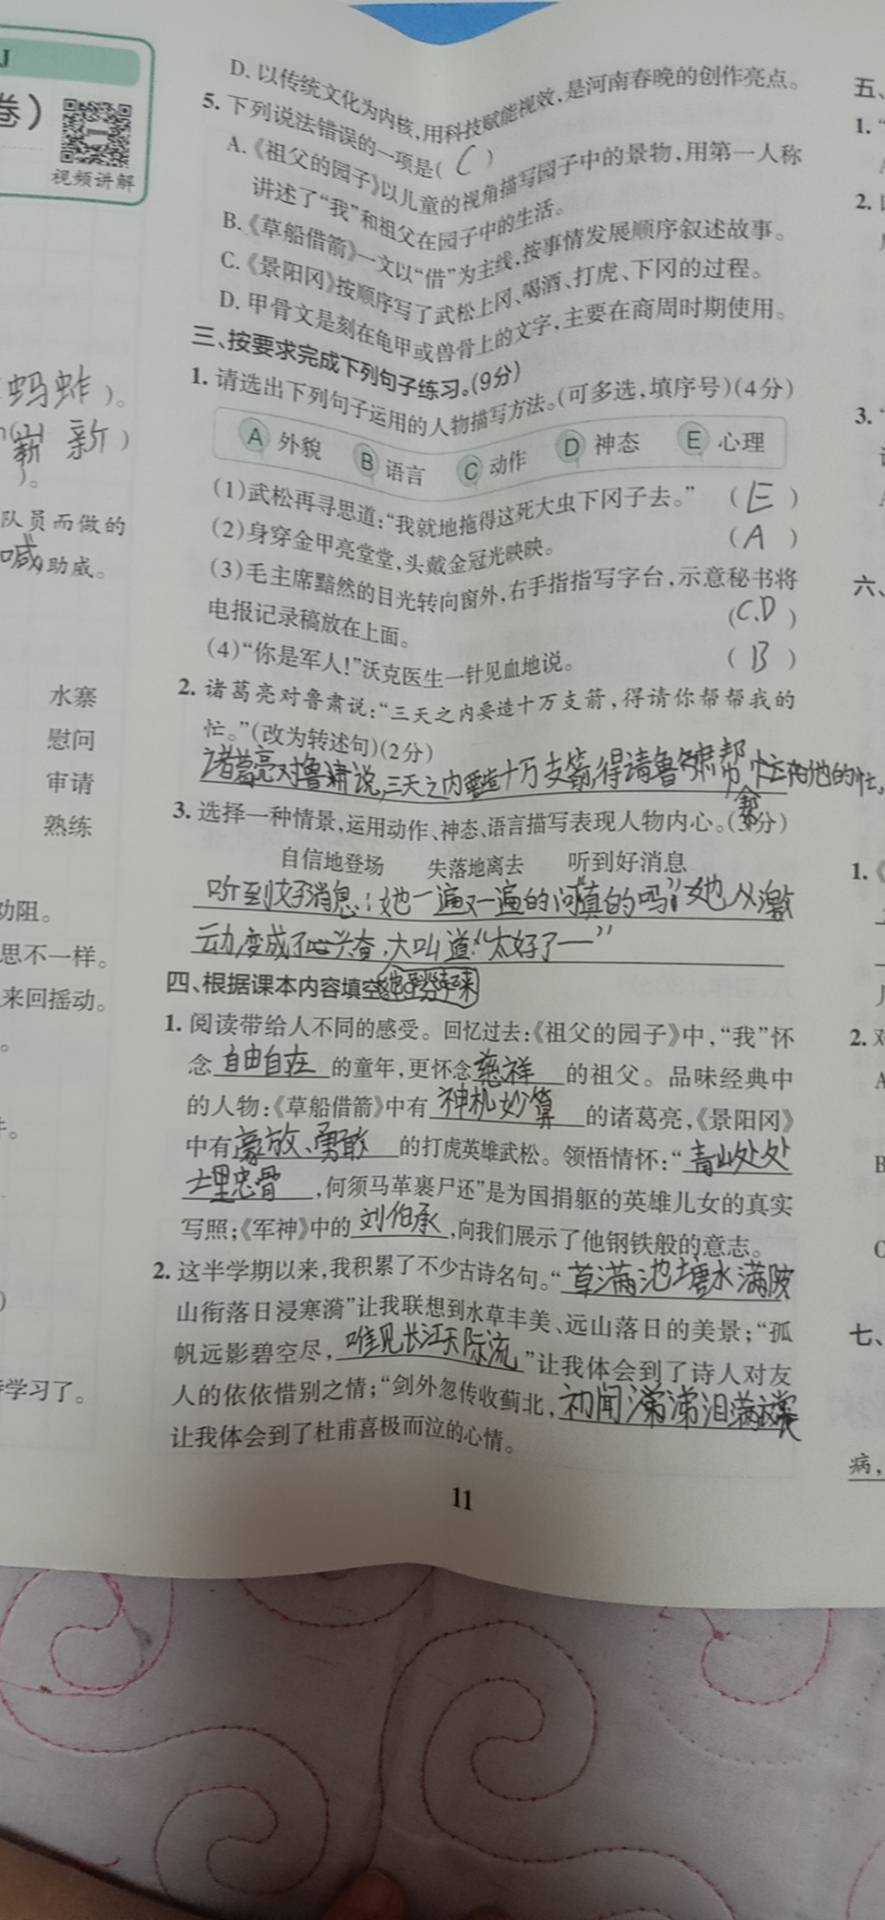 J
卷）
视频讲解
蚂蚱）。
崭新）
）。
队员而做的
喊）助威。
水寨
慰问
审请
熟练
劝阻。
思不一样。
来回摇动。
学习了。
D. 以传统文化为内核，用科技赋能视效，是河南春晚的创作亮点。
5. 下列说法错误的一项是（ C ）
A.《祖父的园子》以儿童的视角描写园子中的景物，用第一人称
讲述了“我”和祖父在园子中的生活。
B.《草船借箭》一文以“借”为主线，按事情发展顺序叙述故事。
C.《景阳冈》按顺序写了武松上冈、喝酒、打虎、下冈的过程。
D. 甲骨文是刻在龟甲或兽骨上的文字，主要在商周时期使用。
三、按要求完成下列句子练习。（9分）
1. 请选出下列句子运用的人物描写方法。（可多选，填序号）（4分）
A 外貌 B 语言 C 动作 D 神态 E 心理
（1）武松再寻思道：“我就地拖得这死大虫下冈子去。”（ E ）
（2）身穿金甲亮堂堂，头戴金冠光映映。（ A ）
（3）毛主席黯然的目光转向窗外，右手指指写字台，示意秘书将
电报记录稿放在上面。（C.D）
（4）“你是军人！”沃克医生一针见血地说。（ B ）
2. 诸葛亮对鲁肃说：“三天之内要造十万支箭，得请你帮帮我的
忙。”（改为转述句）（2分）
诸葛亮对鲁肃说，三天之内要造十万支箭，得请鲁肃帮 他的忙。
3. 选择一种情景，运用动作、神态、语言描写表现人物内心。（3分）
自信地登场 失落地离去 听到好消息
听到好消息：她一遍又一遍的问“真的吗”，她从激
动变成了兴奋，大叫道：“太好了——”
四、根据课本内容填空
1. 阅读带给人不同的感受。回忆过去：《祖父的园子》中，“我”怀
念自由自在的童年，更怀念慈祥的祖父。品味经典中
的人物：《草船借箭》中有神机妙算的诸葛亮，《景阳冈》
中有豪放、勇敢的打虎英雄武松。领悟情怀：“青山处处
埋忠骨，何须马革裹尸还”是为国捐躯的英雄儿女的真实
写照；《军神》中的刘伯承，向我们展示了他钢铁般的意志。
2. 这半学期以来，我积累了不少古诗名句。“草满池塘水满陂
山衔落日浸寒漪”让我联想到水草丰美、远山落日的美景；“孤
帆远影碧空尽，唯见长江天际流”让我体会到了诗人对友
人的依依惜别之情；“剑外忽传收蓟北，初闻涕泪满衣裳
让我体会到了杜甫喜极而泣的心情。
11
五、
1. “
2.
3. “
六、
1.《
2. 对
A
B
C
七、
病，